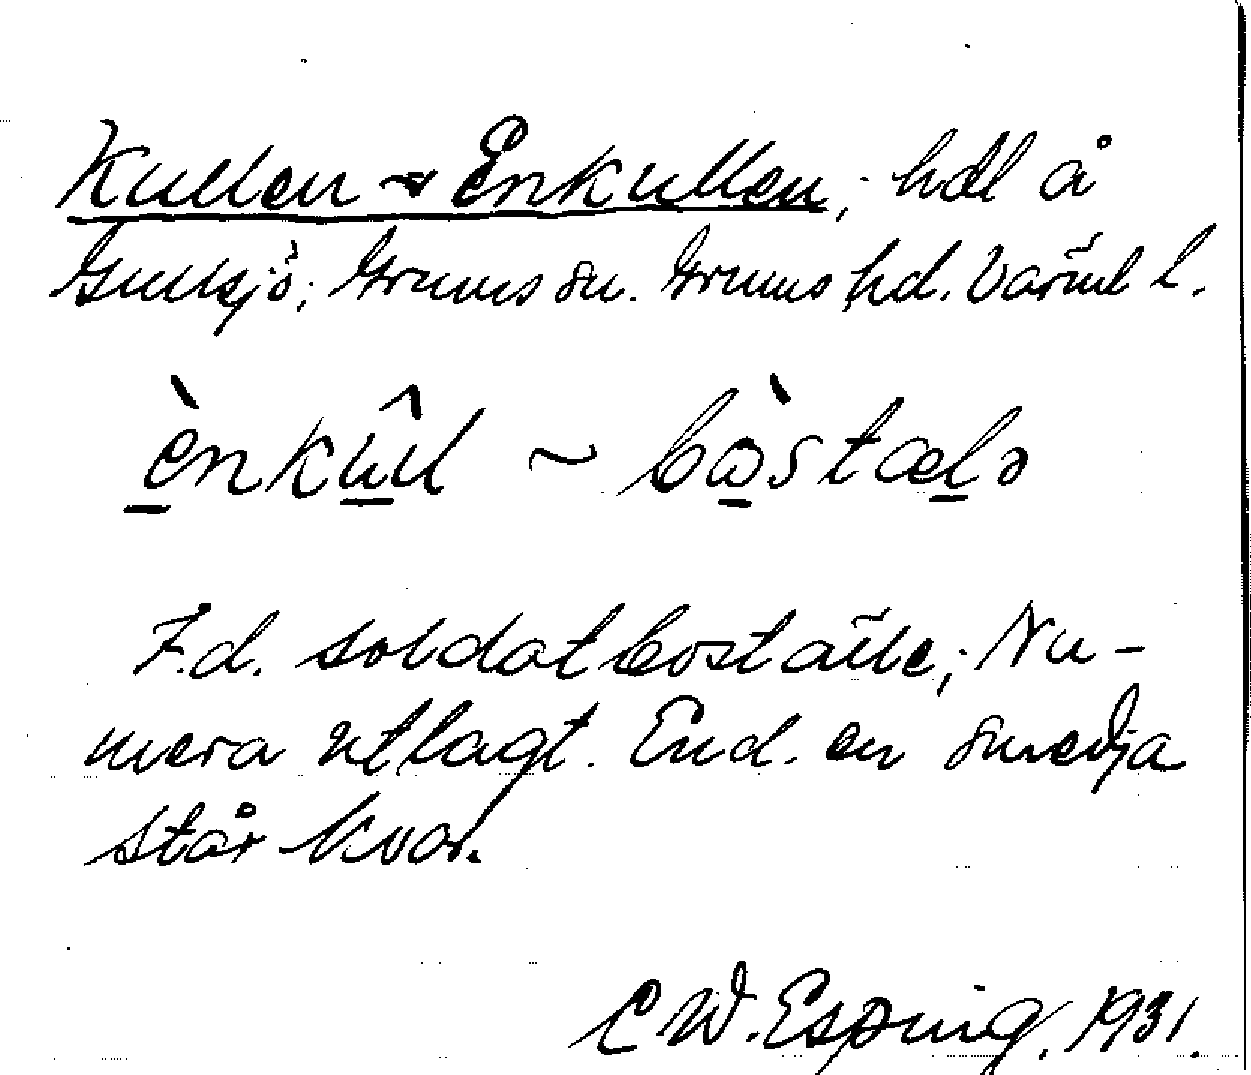 Kullen ~ Enkullen, hdl å
Gullsjö, Grums sn. Grums hd. Värml l.
ènkûl ~ bòstælə
F.d. soldatboställe, Nu-
mera utlagt. End. en smedja
står kvar.
C W. Esping, 1931.